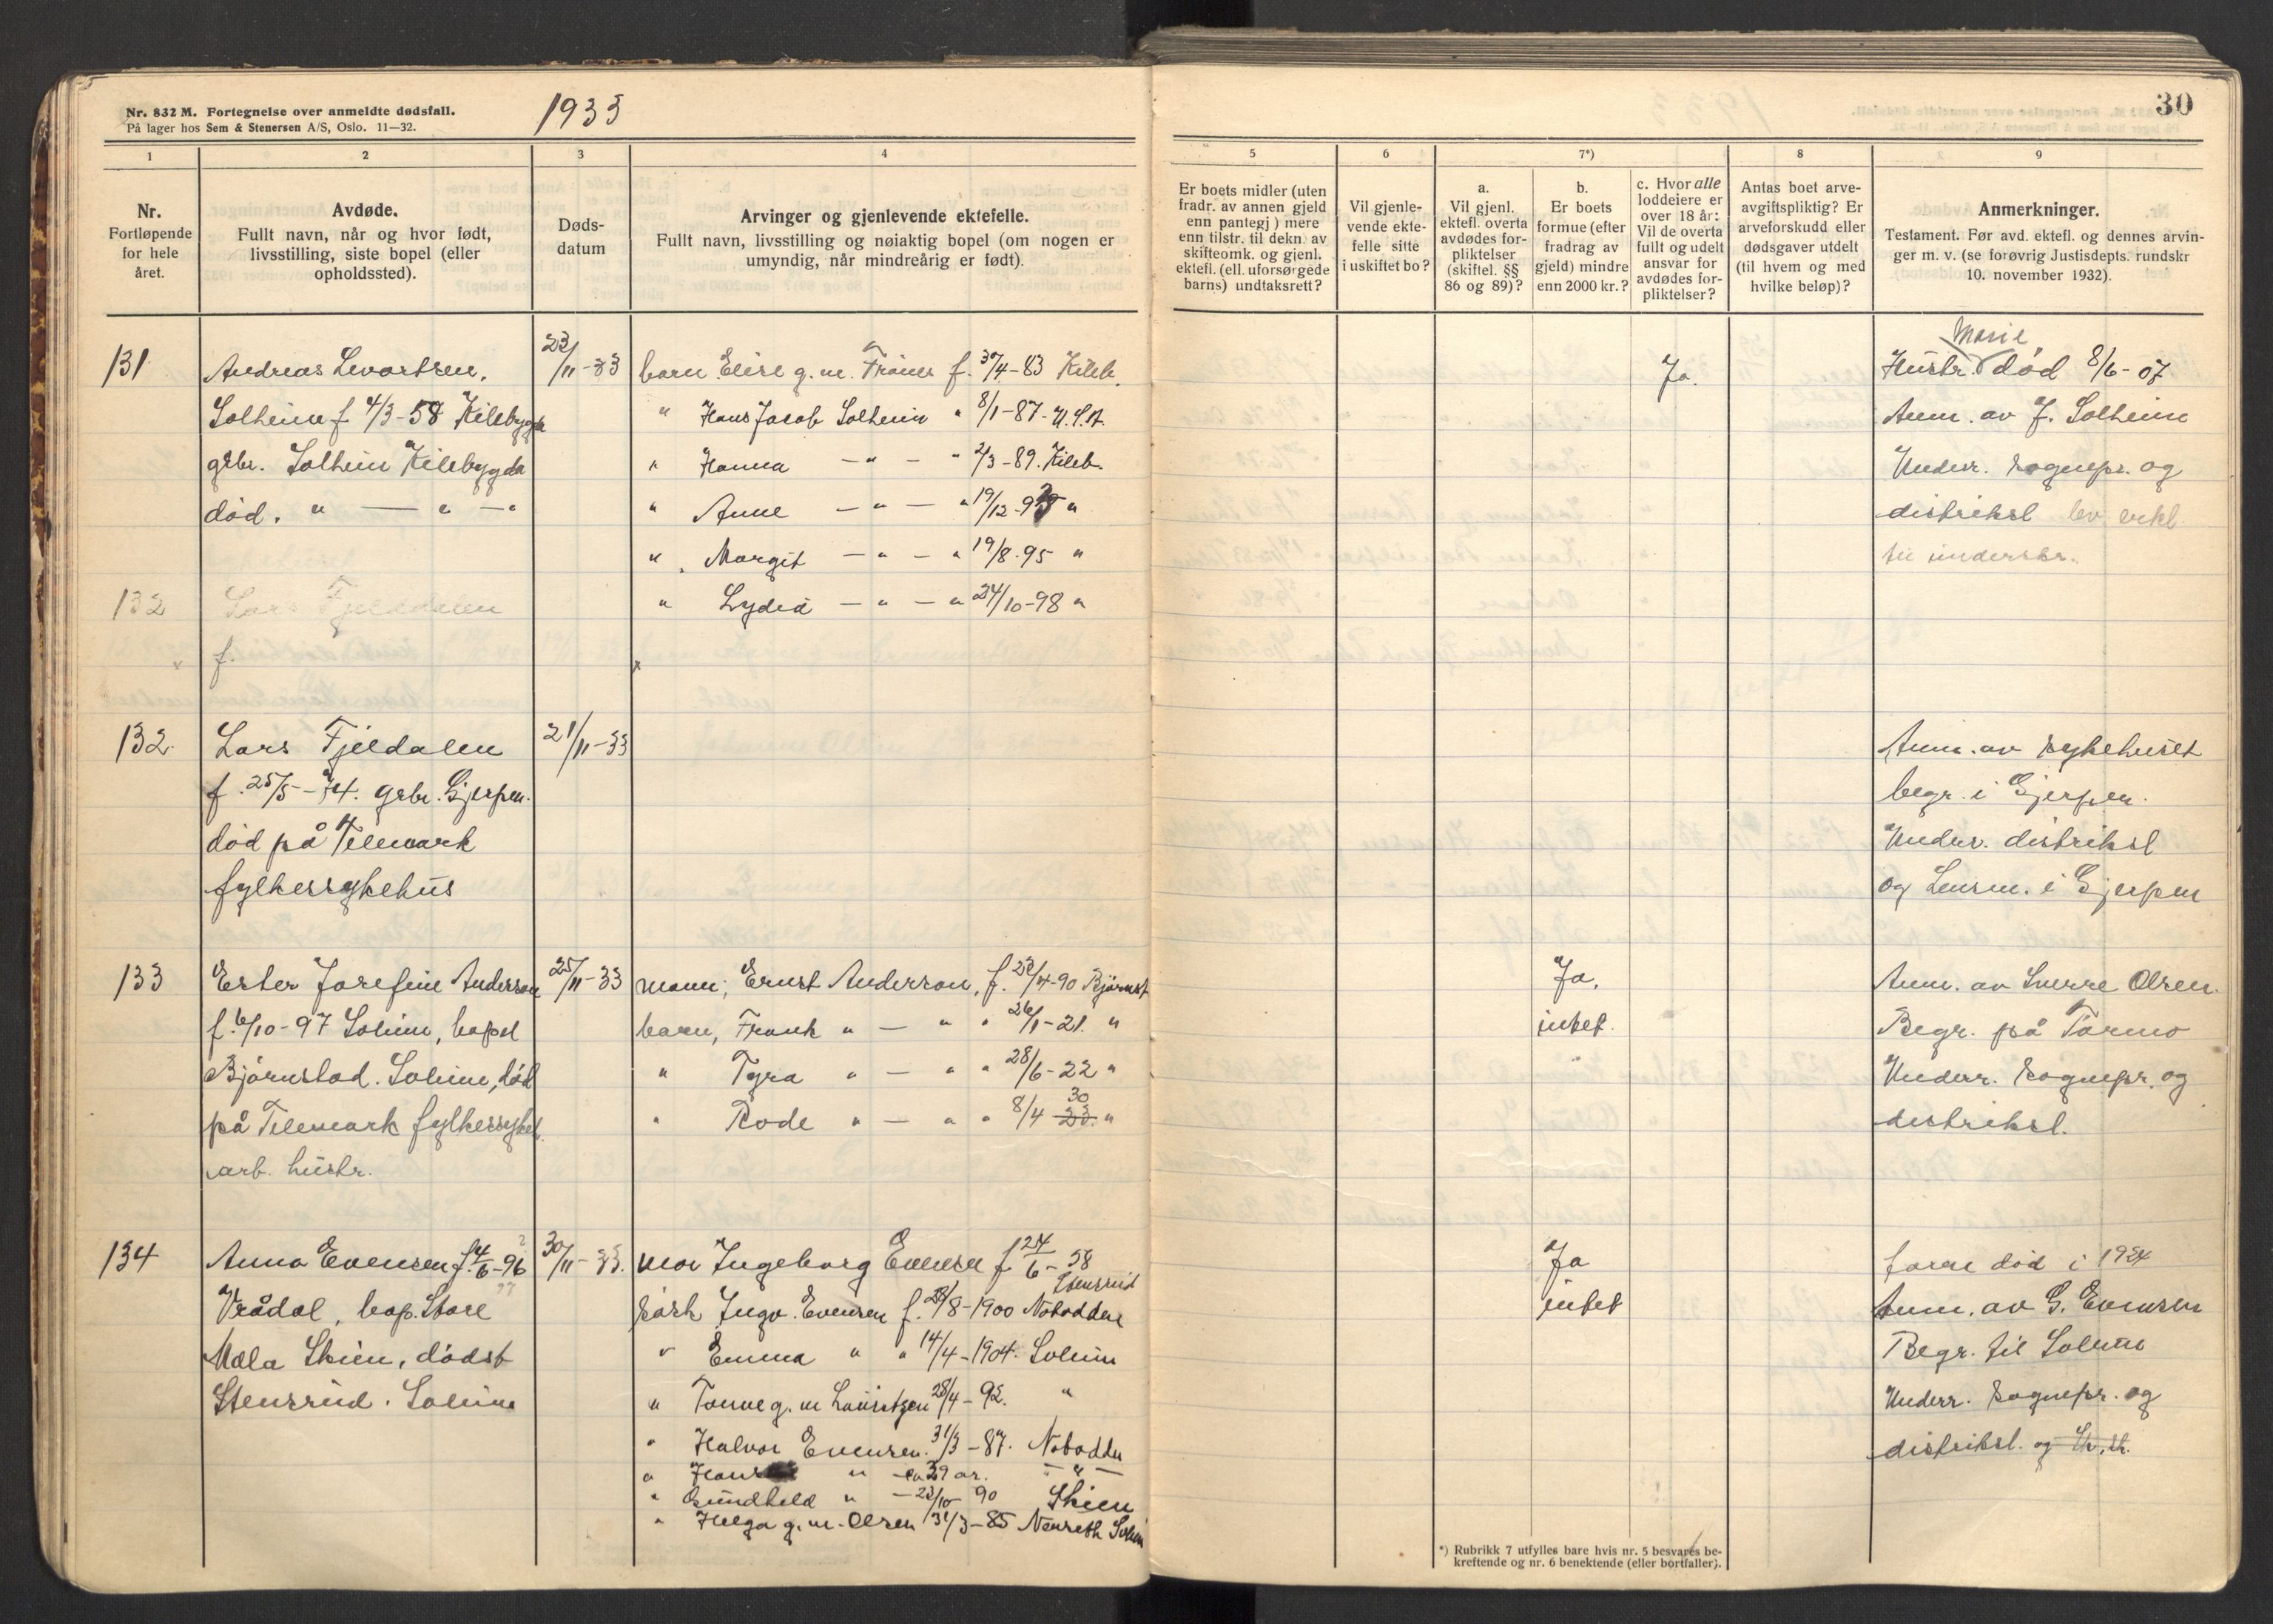 Nr. 832 M. Fortegnelse over anmeldte dødsfall.
På lager hos Sem & Stenersen A/S, Oslo. 11—32.
1933
30
1 2 3 4 5 6 7*) 8 9
Nr.
Fortløpende
for hele
året.
Avdøde.
Fullt navn, når og hvor født,
livsstilling, siste bopel (eller
opholdssted).
Døds-
datum
Arvinger og gjenlevende ektefelle.
Fullt navn, livsstilling og nøiaktig bopel (om nogen er
umyndig, når mindreårig er født).
Er boets midler (uten
fradr. av annen gjeld
enn pantegj) mere
enn tilstr. til dekn. av
skifteomk. og gjenl.
ektefl. (ell. uforsørgede
barns) undtaksrett?
Vil gjenle-
vende ekte-
felle sitte
i uskiftet bo?
a.
Vil gjenl.
ektefl. overta
avdødes for-
pliktelser
(skiftel. §§
86 og 89)?
b.
Er boets
formue (efter
fradrag av
gjeld) mindre
enn 2000 kr.?
c. Hvor alle
loddeiere er
over 18 år:
Vil de overta
fullt og udelt
ansvar for
avdødes for-
pliktelser?
Antas boet arve-
avgiftspliktig? Er
arveforskudd eller
dødsgaver utdelt
(til hvem og med
hvilke beløp)?
Anmerkninger.
Testament. Før avd. ektefl. og dennes arvin-
ger m. v. (se forøvrig Justisdepts. rundskr
10. november 1932).
131
Andreas
Solheim f 4/3-58 Kilebygda
grbr. Solheim Kilebygda
død. " — " — "
23/11-33
barn Elise g. m. f. 30/4-83 Kileb.
" Hans Jacob Solheim " 8/1-87- U.S.A.
" Hanna — " — " 2/3-89. Kileb.
" Anne — " — " 19/12-93 "
" Margit — " — " 19/8-95 "
" Lydia — " — " 24/10-98 "
Ja.
Marie
Hustr. død 8/6-07
Anm. av J. Solheim
Underr. sognepr. og
distriksl lev erkl.
til underskr.
132
Lars Fjelddalen
f.
132.
Lars Fjeldalen
f. 25/5-74. grbr. Gjerpen.
død på Telemark
fylkessykehus
21/11-33
Anm. av sykehuset
begr. i Gjerpen.
Underr. distriksl
og Lensm. i Gjerpen
133
Ester Josefine Anderson
f. 6/10-97 Solum, bopel
Bjørnstad. Solum, død
på Telemark fylkessykeh.
arb. hustr.
25/11-33
mann; Ernst Anderson, f. 23/4-90 Bjørnst
barn, Frank " — " " 26/1-21. "
" Tyra " — " " 28/6-22 "
" Rode " — " " 8/4 23. 30 "
Ja.
intet.
Anm. av Sverre Olsen.
Begr. på
Underr. Sognepr. og
distriksl.
134
Anna Evensen f. 4/6-96 ?
Vrådal, bop. Store
Mæla Skien, dødst
Stensrud. Solum
30/11-33.
mor Ingeborg Evensen f 24/6-58
Stensrud
søsk Ingv. Evensen f. 28/8-1900 Notodden
" Emma " " 14/4-1904. Solum
" Tonne g. m Lauritzen 28/4-92. "
" Halvor Evensen. 31/3-87. Notodden
" Hans " — ca 39 år. — " —
" Gundhild " — 23/10- 90 Skien
" Helga g. m. Olsen 31/3-85 Solum
Ja
intet
faren død i 1924
Anm. av G. Evensen
Begr. til Solum
Underr. Sognepr. og
distriksl. og
*) Rubrikk 7 utfylles bare hvis nr. 5 besvares be-
kreftende og nr. 6 benektende (eller bortfaller).